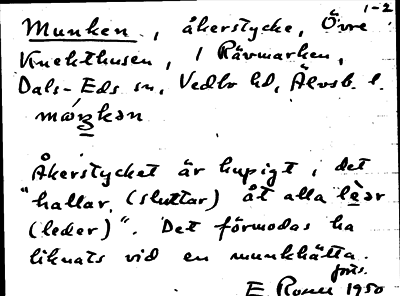 1-2
Munken, åkerstycke, Övre
Knekthusen, 1 Rävmarken,
Dals-Eds sn, Vedbo hd, Älvsb. l.
Åkerstycket är kupigt, det
"hallar (sluttar) åt alla lèər
(leder)". Det förmodas ha
liknats vid en munkhätta.
forts.
E Rosell 1950